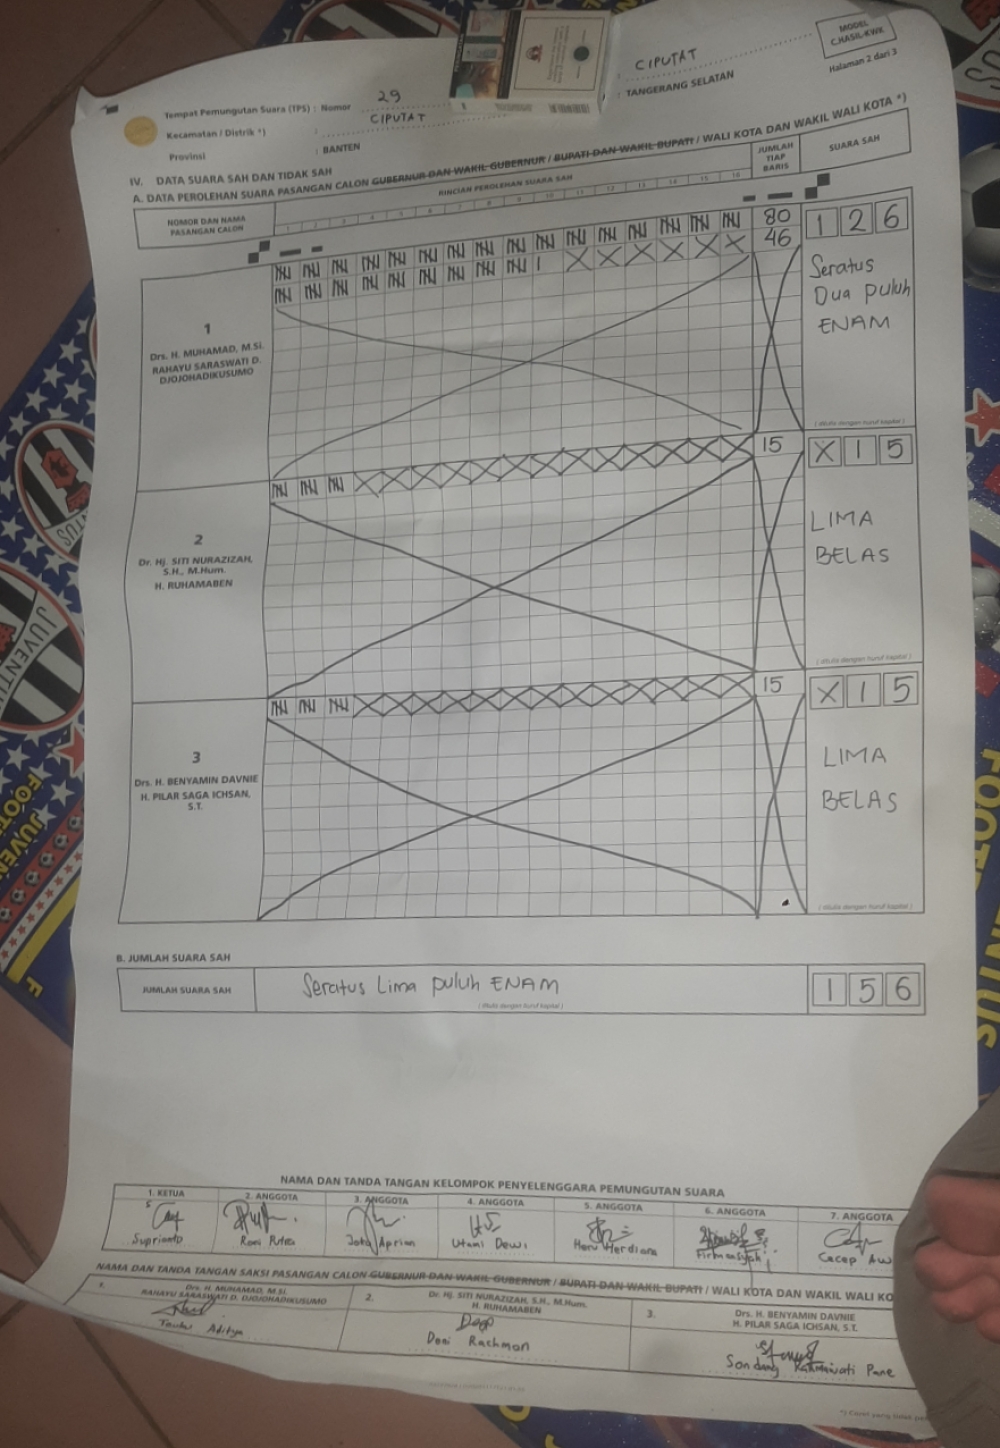 MODEL
C.HASIL-KWK
Halaman 2 dari 3
Tempat Pemungutan Suara (TPS) : Nomor 29
CIPUTAT
Kecamatan / Distrik *) : CIPUTAT
: TANGERANG SELATAN
Provinsi : BANTEN
IV. DATA SUARA SAH DAN TIDAK SAH
A. DATA PEROLEHAN SUARA PASANGAN CALON GUBERNUR DAN WAKIL GUBERNUR / BUPATI DAN WAKIL BUPATI / WALI KOTA DAN WAKIL WALI KOTA *)
NOMOR DAN NAMA
PASANGAN CALON
RINCIAN PEROLEHAN SUARA SAH
1 2 3 4 5 6 7 8 9 10 11 12 13 14 15 16
JUMLAH
TIAP
BARIS
SUARA SAH
1
Drs. H. MUHAMAD, M.Si.
RAHAYU SARASWATI D.
DJOJOHADIKUSUMO
80
46
1 2 6
Seratus
Dua puluh
ENAM
( ditulis dengan huruf kapital )
2
Dr. Hj. SITI NURAZIZAH,
S.H., M.Hum.
H. RUHAMABEN
15
X 1 5
LIMA
BELAS
( ditulis dengan huruf kapital )
3
Drs. H. BENYAMIN DAVNIE
H. PILAR SAGA ICHSAN,
S.T.
15
X 1 5
LIMA
BELAS
( ditulis dengan huruf kapital )
B. JUMLAH SUARA SAH
JUMLAH SUARA SAH
Seratus Lima puluh ENAM
( ditulis dengan huruf kapital )
1 5 6
NAMA DAN TANDA TANGAN KELOMPOK PENYELENGGARA PEMUNGUTAN SUARA
1. KETUA
2. ANGGOTA
3. ANGGOTA
4. ANGGOTA
5. ANGGOTA
6. ANGGOTA
7. ANGGOTA
Suprianto
Roni Putra
Joko Aprian
Utami Dewi
Heru Herdiana
Firmansyah
Cacep Aw
NAMA DAN TANDA TANGAN SAKSI PASANGAN CALON GUBERNUR DAN WAKIL GUBERNUR / BUPATI DAN WAKIL BUPATI / WALI KOTA DAN WAKIL WALI KO
1.
Drs. H. MUHAMAD, M.Si.
RAHAYU SARASWATI D. DJOJOHADIKUSUMO
Aditya
2.
Dr. Hj. SITI NURAZIZAH, S.H., M.Hum.
H. RUHAMABEN
Doni Rachman
3.
Drs. H. BENYAMIN DAVNIE
H. PILAR SAGA ICHSAN, S.T.
Sondang Rahmawati Pane
JUVENTUS
FOOT
JUVEN